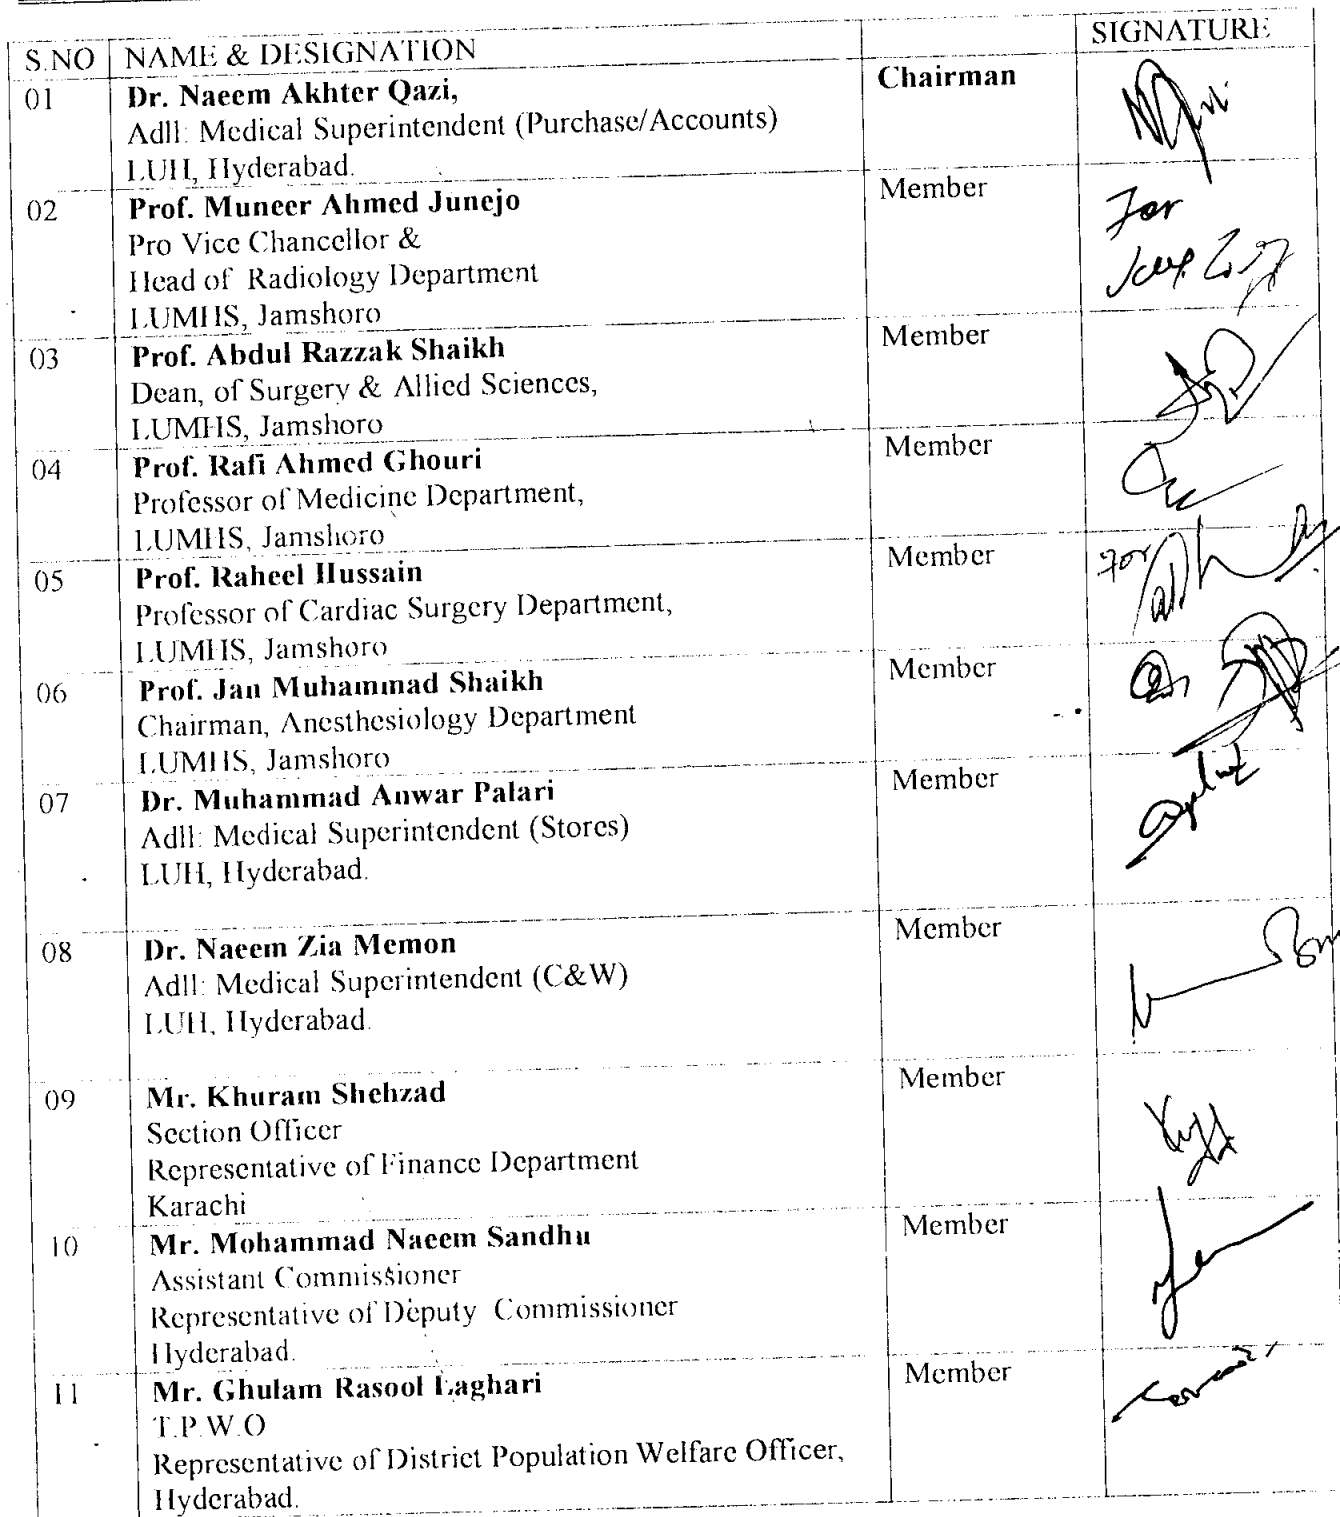 S.NO NAME & DESIGNATION SIGNATURE
01 Dr. Naeem Akhter Qazi, Chairman
Adll: Medical Superintendent (Purchase/Accounts)
LUH, Hyderabad.
02 Prof. Muneer Ahmed Junejo Member
For
Pro Vice Chancellor &
Head of Radiology Department
LUMHS, Jamshoro
03 Prof. Abdul Razzak Shaikh Member
Dean, of Surgery & Allied Sciences,
LUMHS, Jamshoro
04 Prof. Rafi Ahmed Ghouri Member
Professor of Medicine Department,
LUMHS, Jamshoro
05 Prof. Raheel Hussain Member For
Professor of Cardiac Surgery Department,
LUMHS, Jamshoro
06 Prof. Jan Muhammad Shaikh Member
Chairman, Anesthesiology Department
LUMHS, Jamshoro
07 Dr. Muhammad Anwar Palari Member
Adll: Medical Superintendent (Stores)
LUH, Hyderabad.
08 Dr. Naeem Zia Memon Member
Adll: Medical Superintendent (C&W)
LUH, Hyderabad.
09 Mr. Khuram Shehzad Member
Section Officer
Representative of Finance Department
Karachi
10 Mr. Mohammad Naeem Sandhu Member
Assistant Commissioner
Representative of Deputy Commissioner
Hyderabad.
11 Mr. Ghulam Rasool Laghari Member
T.P.W.O
Representative of District Population Welfare Officer,
Hyderabad.